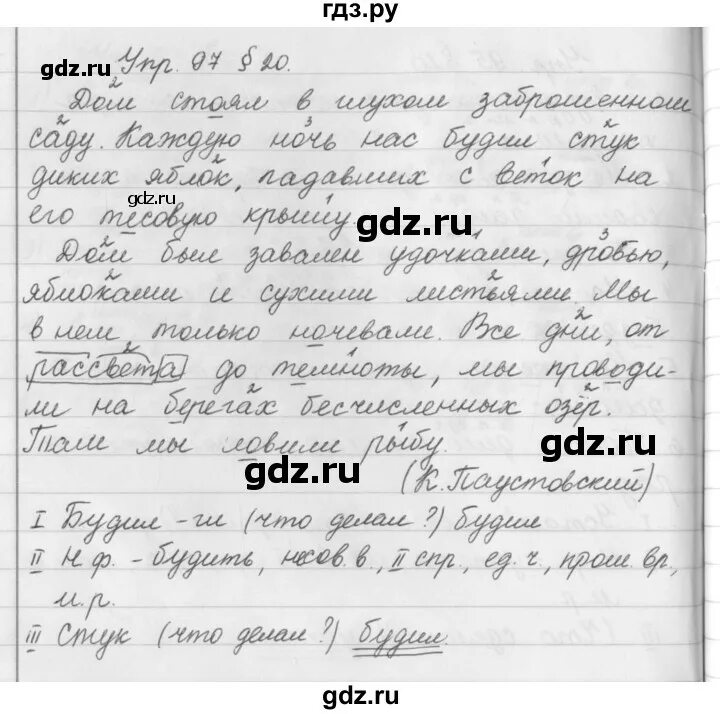 гдз.ру
Упр. 97 § 20.
gdz.ru
Дом стоял в глухом заброшенном
саду. Каждую ночь нас будил стук
диких яблок, падавших с веток на
gdz.ru
его тесовую крышу.
gdz.ru
Дом был завален удочками, дробью,
яблоками и сухими листьями. Мы
в нем только ночевали. Все дни, от
рассвета до темноты, мы проводи-
ли на берегах бесчисленных озёр.
Там мы ловили рыбу.
gdz.ru
gdz.ru
(К. Паустовский)
I Будил - гл (что делал?) будил
II Н.ф. - будить, несов. в., II спр., ед. ч., прош. вр.,
м.р.
III Стук (что делал?) будил.
gdz.ru
gdz.ru